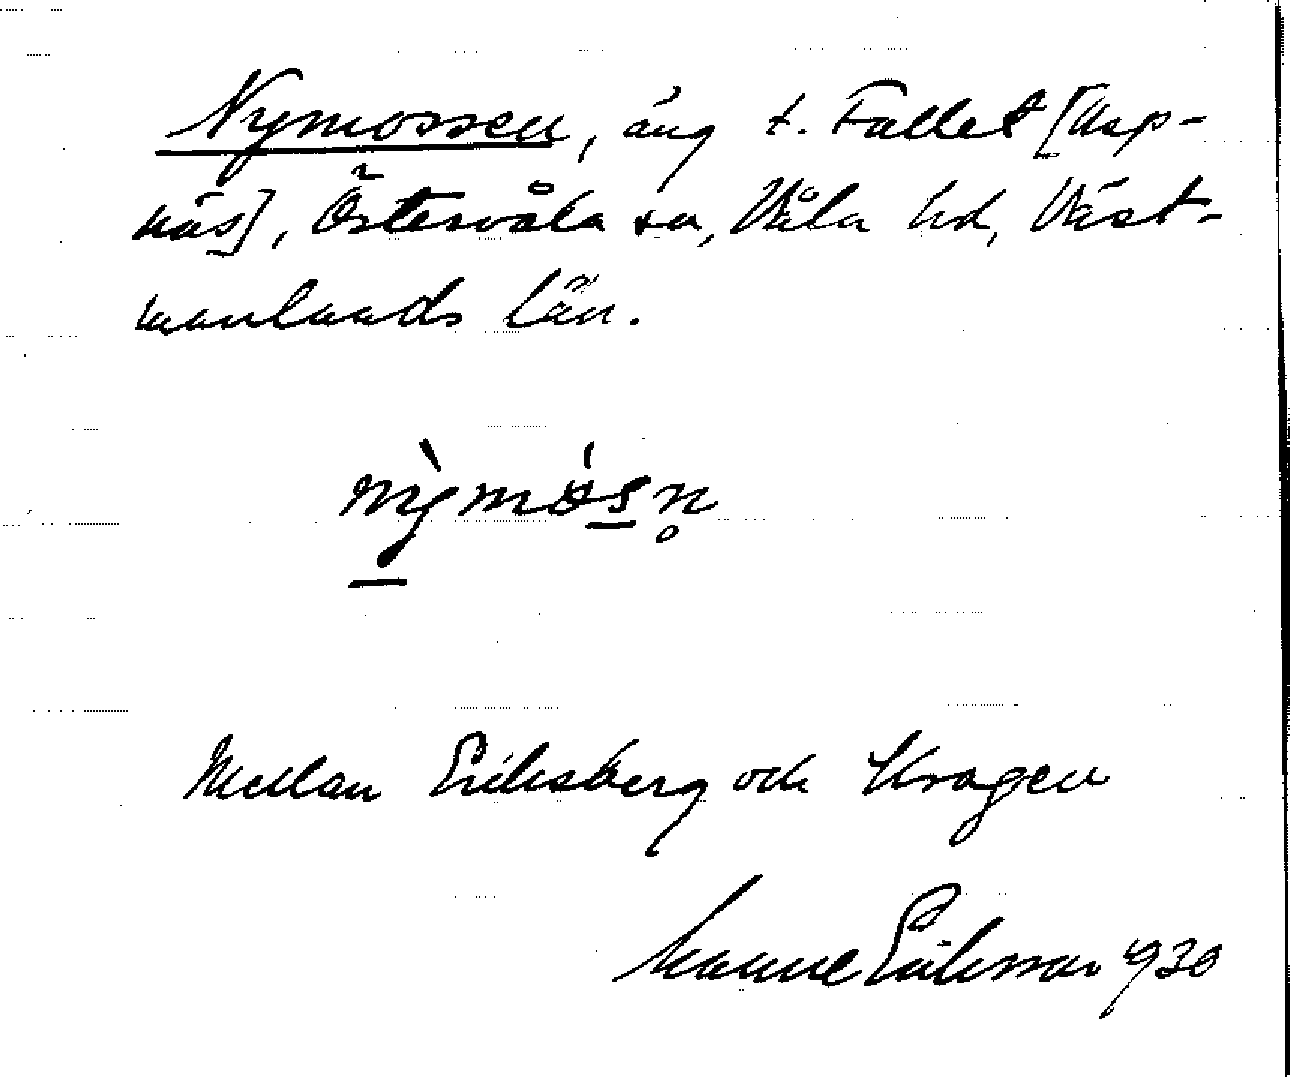 Nymossen, äng t. Fallet [Asp-
näs], Östervåla sn, Våla hd, Väst-
manlands län.
Mellan Eriksberg och Kragen
Manne Eriksson 1930